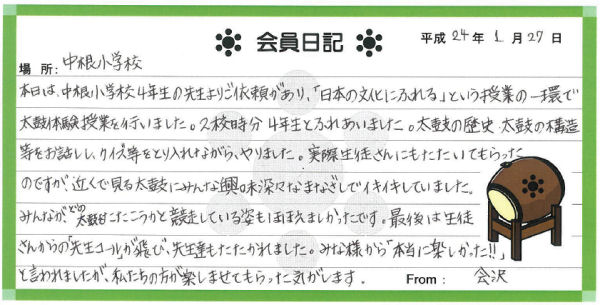 会員日記
平成 24 年 1 月 27 日
場 所: 中根小学校
本日は、中根小学校4年生の先生よりご依頼があり、「日本の文化にふれる」という授業の一環で
太鼓体験授業を行いました。2校時分4年生とふれあいました。太鼓の歴史 太鼓の構造
等をお話しし、クイズ等をとり入れながら、やりました。実際生徒さんにもたたいてもらった
のですが、近くで見る太鼓にみんな興味深々なまなざしでイキイキしていました。
みんなが、どの太鼓をたたこうかと競走している姿もほほえましかったです。最後は生徒
さんからの「先生コール」が飛び、先生達もたたかれました。みな様から「本当に楽しかった!!」
と言われましたが、私たちの方が楽しませてもらった気がします。
From: 会沢